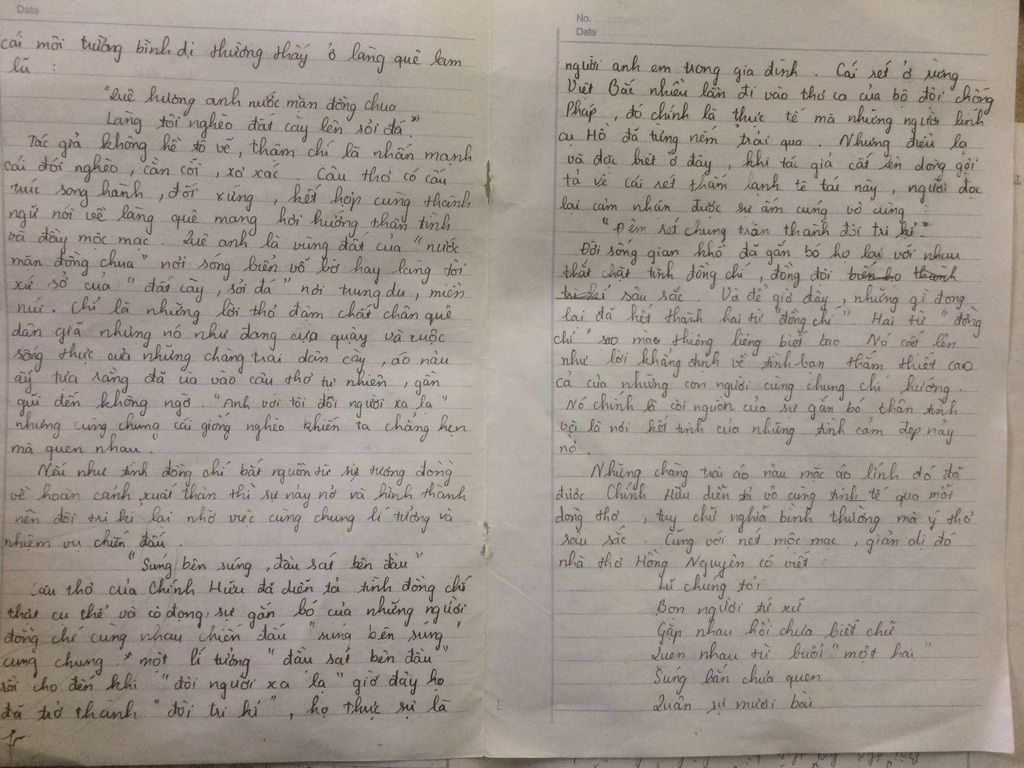 Date
cái môi trường bình dị thường thấy ở làng quê lam
lũ :
"Quê hương anh nước mặn đồng chua
Làng tôi nghèo đất cày lên sỏi đá."
Tác giả không hề tô vẽ, thậm chí là nhấn mạnh
cái đói nghèo, cằn cỗi, xơ xác. Câu thơ có cấu
trúc song hành, đối xứng, kết hợp cùng thành
ngữ nói về làng quê mang hơi hướng thân tình
và đầy mộc mạc. Quê anh là vùng đất của "nước
mặn đồng chua" nơi sóng biển vỗ bờ hay làng tôi
xứ sở của "đất cày, sỏi đá" nơi trung du, miền
núi. Chỉ là những lời thơ đậm chất chân quê
dân giã nhưng nó như đang cựa quậy và cuộc
sống thực của những chàng trai dân cày, áo nâu
ấy tựa rằng đã ùa vào câu thơ tự nhiên, gần
gũi đến không ngờ. "Anh với tôi đôi người xa lạ"
nhưng cùng chung cái giống nghèo khiến ta chẳng hẹn
mà quen nhau.
Nếu như tình đồng chí bắt nguồn từ sự tương đồng
về hoàn cảnh xuất thân thì sự nảy nở và hình thành
nên đôi tri kỉ lại nhờ việc cùng chung lí tưởng và
nhiệm vụ chiến đấu.
"Súng bên súng, đầu sát bên đầu"
Câu thơ của Chính Hữu đã diễn tả tình đồng chí
thật cụ thể và cô đọng, sự gắn bó của những người
đồng chí cùng nhau chiến đấu "súng bên súng"
cùng chung một lí tưởng "đầu sát bên đầu"
rồi cho đến khi "đôi người xa lạ" giờ đây họ
đã trở thành "đôi tri kỉ", họ thực sự là
No.
Date
người anh em trong gia đình. Cái rét ở rừng
Việt Bắc nhiều lần đi vào thơ ca của bộ đội chống
Pháp, đó chính là thực tế mà những người lính
cụ Hồ đã từng nếm trải qua. Nhưng điều lạ
và đặc biệt ở đây, khi tác giả cất lên dòng gợi
tả về cái rét thấm lạnh tê tái này, người đọc
lại cảm nhận được sự ấm cúng vô cùng :
"Đêm rét chung trăn thành đôi tri kỉ."
Đời sống gian khổ đã gắn bó họ lại với nhau
thắt chặt tình đồng chí, đồng đội biến họ thành
tri kỉ sâu sắc. Và để giờ đây, những gì đọng
lại đã kết thành hai từ "đồng chí". Hai từ "đồng
chí" sao mà thiêng liêng biết bao. Nó cất lên
như lời khẳng định về tình bạn thắm thiết cao
cả của những con người cùng chung chí hướng.
Nó chính là cội nguồn của sự gắn bó thân tình
và là nơi kết tinh của những tình cảm đẹp nảy
nở.
Những chàng trai áo nâu mặc áo lính đó đã
được Chính Hữu diễn tả vô cùng tinh tế qua mỗi
dòng thơ, tuy chữ nghĩa bình thường mà ý thơ
sâu sắc. Cùng với nét mộc mạc, giản dị đó
nhà thơ Hồng Nguyên có viết :
Lũ chúng tôi
Bọn người tứ xứ
Gặp nhau hồi chưa biết chữ
Quen nhau từ buổi "một hai"
Súng bắn chưa quen
Quân sự mươi bài